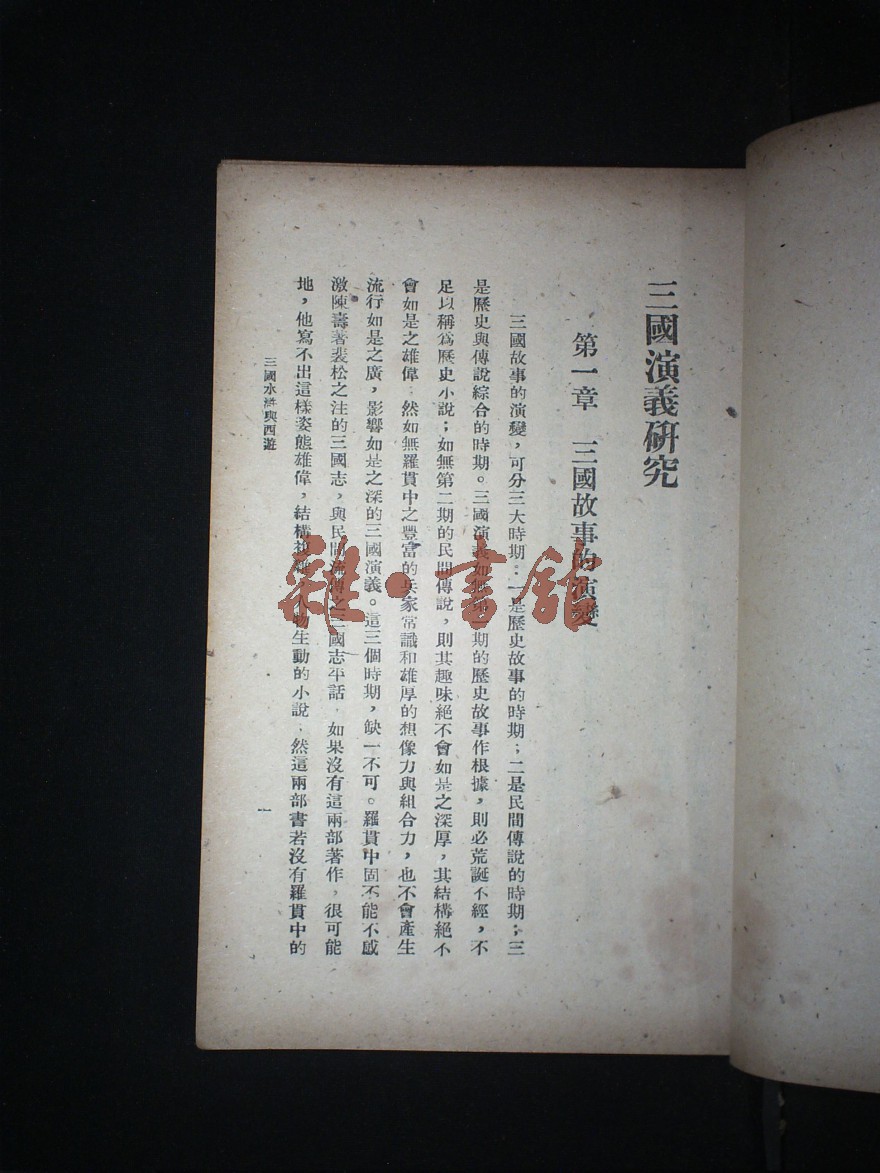 三國演義研究
第一章　三國故事的演變
三國故事的演變，可分三大時期：一是歷史故事的時期；二是民間傳說的時期；三
是歷史與傳說綜合的時期。三國演義如無第一期的歷史故事作根據，則必荒誕不經，不
足以稱爲歷史小說；如無第二期的民間傳說，則其趣味絕不會如是之深厚，其結構絕不
會如是之雄偉，然如無羅貫中之豐富的兵家常識和雄厚的想像力與組合力，也不會產生
流行如是之廣，影響如是之深的三國演義。這三個時期，缺一不可。羅貫中固不能不感
激陳壽著裴松之注的三國志，與民間流傳之三國志平話，如果沒有這兩部著作，很可能
地，他寫不出這樣姿態雄偉，結構物生動的小說，然這兩部書若沒有羅貫中的
三國水滸與西遊
一
雜·書館